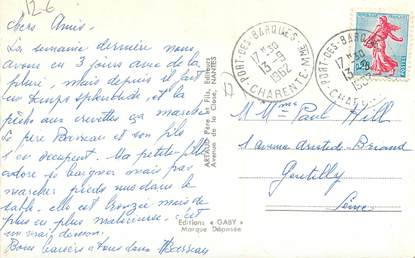 12-6
Chers Amis.
La semaine dernière nous
avons eu 3 jours avec de la
pluie, mais depuis il fait
un temps splendide, et la
pêche aux crevettes ça marche
Le père et son fils
s'en occupent. Ma petite fille
adore se baigner mais pas
marcher pieds nus dans le
sable. elle est bronzée mais de
plus en plus malicieuse. c'est
un vrai démon.
Bons baisers à vous deux
ARTAUD Père et Fils, Editeurs
Avenue de la Close, NANTES
Editions « GABY »
Marque Déposée
PORT-DES-BARQUES
17H30
13-9
1962
CHARENTE-MME
PORT-DES-BARQUES
17H30
13
0,25
M Mme Paul Hill
1 avenue Aristide Briand
Gentilly
Seine